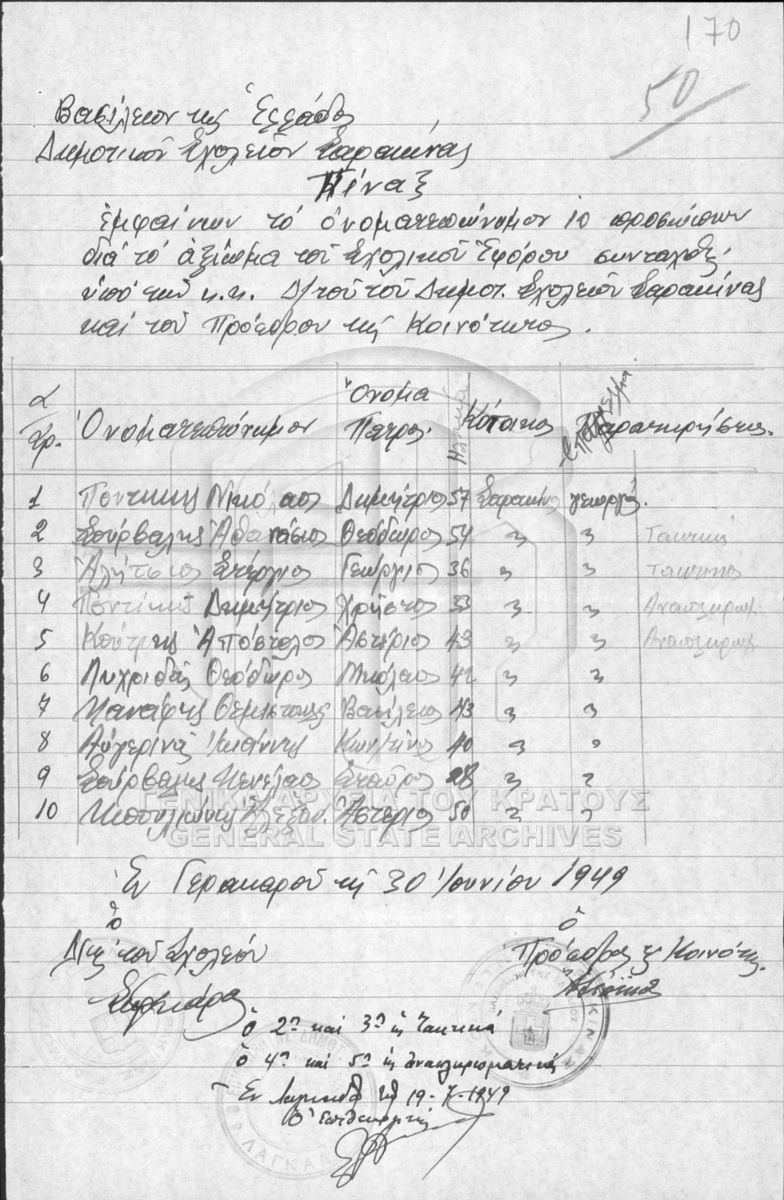 170
50
Βασίλειον τῆς Ἑλλάδος
Δημοτικόν Σχολεῖον Σαρακήνας
Πίναξ
ἐμφαίνων τό ὀνοματεπώνυμον 10 προσώπων
διά τό ἀξίωμα τοῦ Σχολικοῦ Ἐφόρου
ὑπό τῶν κ.κ. Δ/τοῦ τοῦ Δημοτ. Σχολείου Σαρακήνας
καί τοῦ Προέδρου τῆς Κοινότητος.
α/ἀρ. Ὀνοματεπώνυμον Ὄνομα Πατρός Ἡλικία Κάτοικος ἐπάγγελμα Παρατηρήσεις
1 Ποντικης Νικόλαος Δημήτριος 57 Σαρακήνα γεωργός.
2 Σούρβαλης Ἀθανάσιος Θεόδωρος 54 〃 〃 Τακτικός
3 Στέργιος Γεώργιος 36 〃 〃 Τακτικός
4 Ποντίκης Δημήτριος Χρῆστος 33 〃 〃 Αναπληρωμ.
5 Ἀπόστολος Ἀστέριος 43 〃 〃 Αναπληρωμ.
6 Θεόδωρος Νικόλαος 42 〃 〃
7 Θεμιστοκλῆς Βασίλειος 43 〃 〃
8 Αὐγερινός Ἰωάννης Κων/τῖνος 40 〃 〃
9 Σούρβαλης Μενέλαος Σταῦρος 〃 〃
10 Ἀλέξαν. Ἀστέριος 50 〃 〃
ΓΕΝΙΚΑ ΑΡΧΕΙΑ ΤΟΥ ΚΡΑΤΟΥΣ
GENERAL STATE ARCHIVES
Ἐν Γερακαροῦ τῇ 30 Ἰουνίου 1949
ὁ ὁ
Δ/τής τοῦ Σχολείου Πρόεδρος τ. Κοινότη.
ὁ 2ος καί 3ος ὡς Τακτικά
ὁ 4ος καί 5ος ὡς ἀναπληρωματικά
Ἐν Λαγκαδᾷ τῇ 19-7-1949
Ὁ Ἐπιθεωρητής